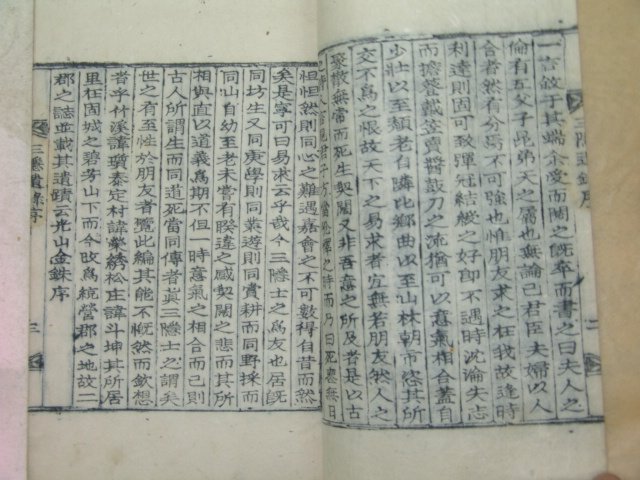 一言敍于其端余受而閱之旣卒而書之曰夫人之
倫有五父子昆弟天之屬也無論已君臣夫婦以人
合者然有分焉不可強也惟朋友求之在我故逢時
利達則固可致彈冠結綬之好卽不遇時沈淪失志
而擔簦戴笠賣醬鼓刀之流猶可以意氣相合蓋自
少壯以至頹老自隣比鄉曲以至山林朝市恣其所
交不爲之恨故天下之易求者宜無若朋友然人之
聚散無常而死生契闊又非吾意之所及者是以古
之時而乃曰死喪無日
矣是寧可曰易求云乎哉今三隱士之爲友也居旣
同坊生又同庚學則同業遊則同賞耕而同野採而
同山自幼至老未嘗有睽違之慼契闊之悲而其所
相與直以道義爲期不但一時意氣之相合而已則
古人所謂生而同道死當同傳者眞三隱士之謂矣
世之有至性於朋友者覽此編其能不慨然而欽想
者乎竹溪諱瓆泰定村諱 綉松庄諱斗坤其所居
里在固城之碧芳山下而今改爲統營郡之地故二
郡之誌並載其遺蹟云光山金銖序
怛怛然則同心之難遇嘉會之不可數得自昔而然
三隱遺錄序
二
三隱遺錄序
三